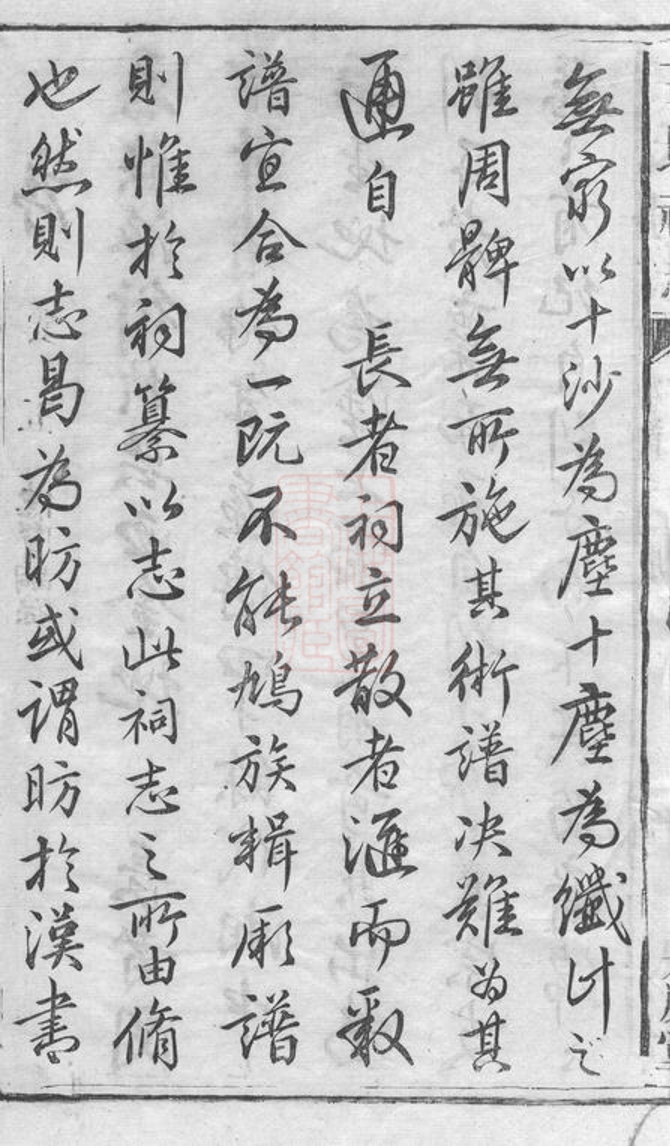 無窮以十沙為塵十塵為纖計之
雖周髀無所施其術譜決難為其
通自 長者祠立散者滙而敷
譜宜合為一既不能鳩族輯厥譜
則惟於祠纂以志此祠志之所由脩
也然則志曷為昉或謂昉於漢書